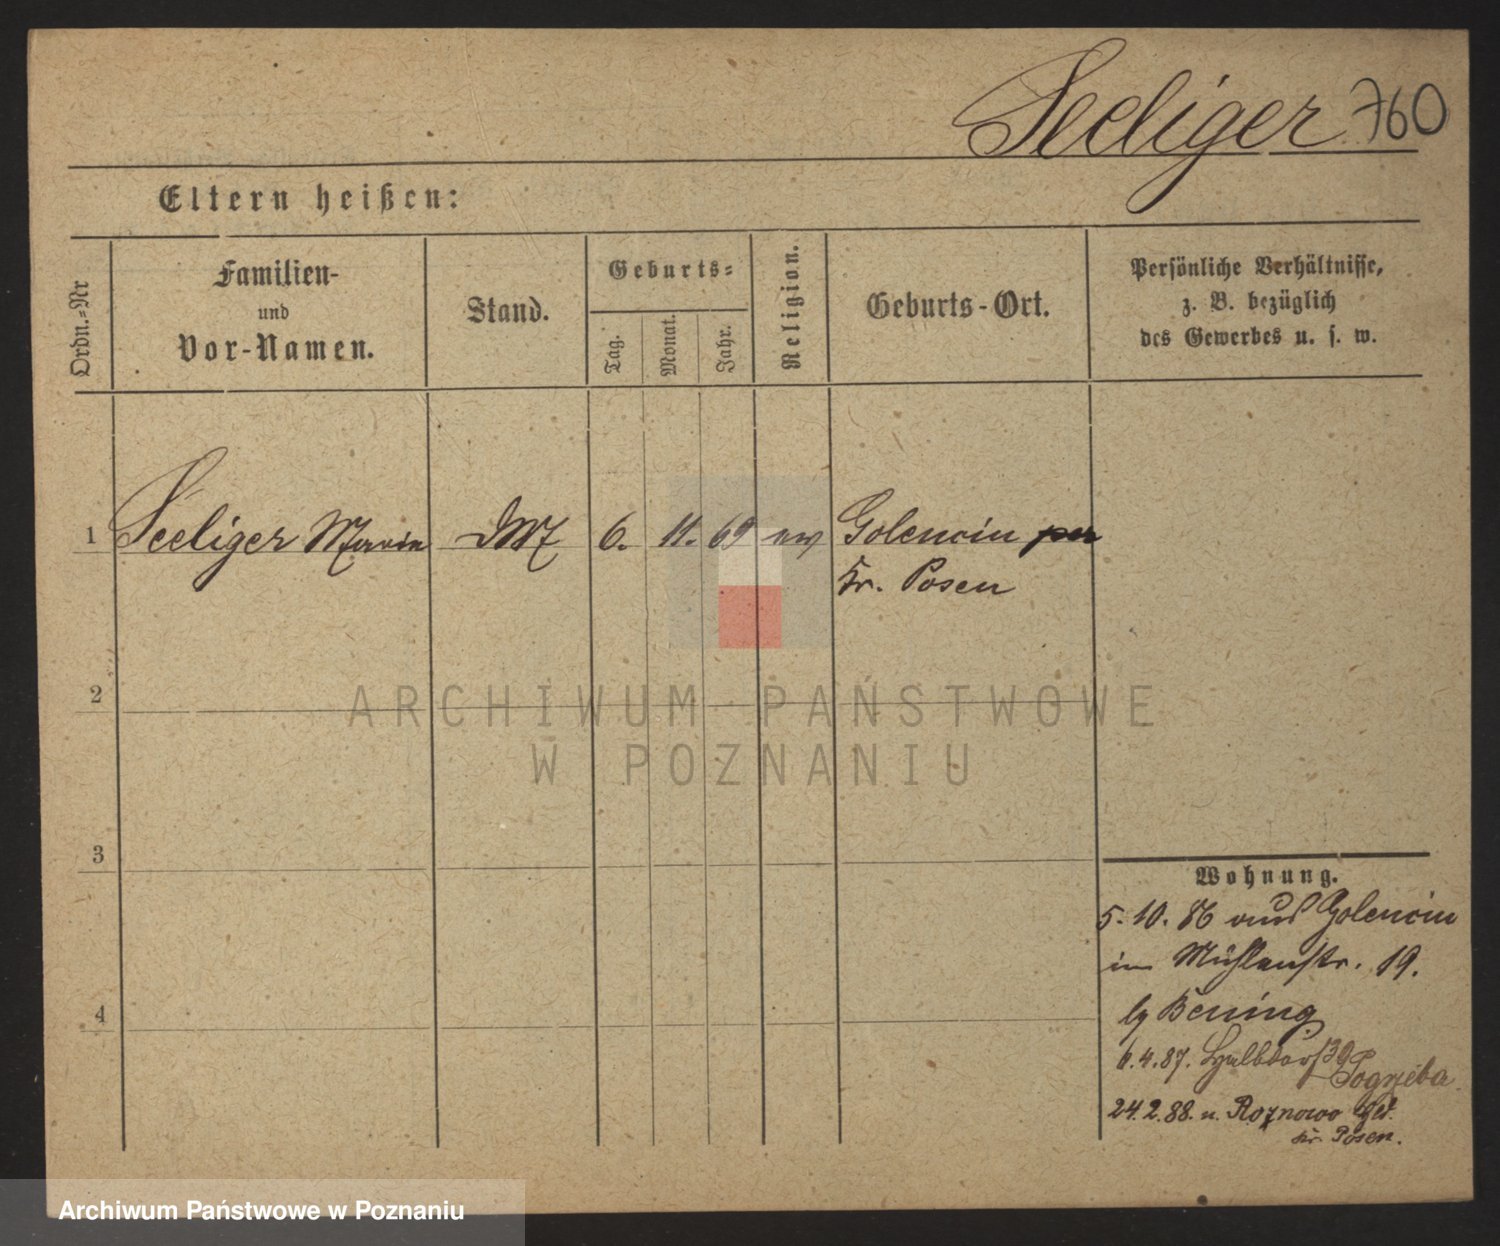 Seeliger 760
Eltern heißen:
Ordn.-Nr
Familien-
und
Vor-Namen.
Stand.
Geburts-
Tag.
Monat.
Jahr.
Religion.
Geburts-Ort.
Persönliche Verhältnisse,
z. B. bezüglich
des Gewerbes u. s. w.
1 Seeliger Marie DM 6. 11. 69 ev Golencin
Kr. Posen
2
3
4
ARCHIWUM PAŃSTWOWE
W POZNANIU
Wohnung.
5. 10. 86 aus Golencin
in Mühlenstr. 19.
Bening
6.4.87. Halbdorfs 39 Pogrzeba
24.2.88. n. Roznowo
Kr. Posen.
Archiwum Państwowe w Poznaniu